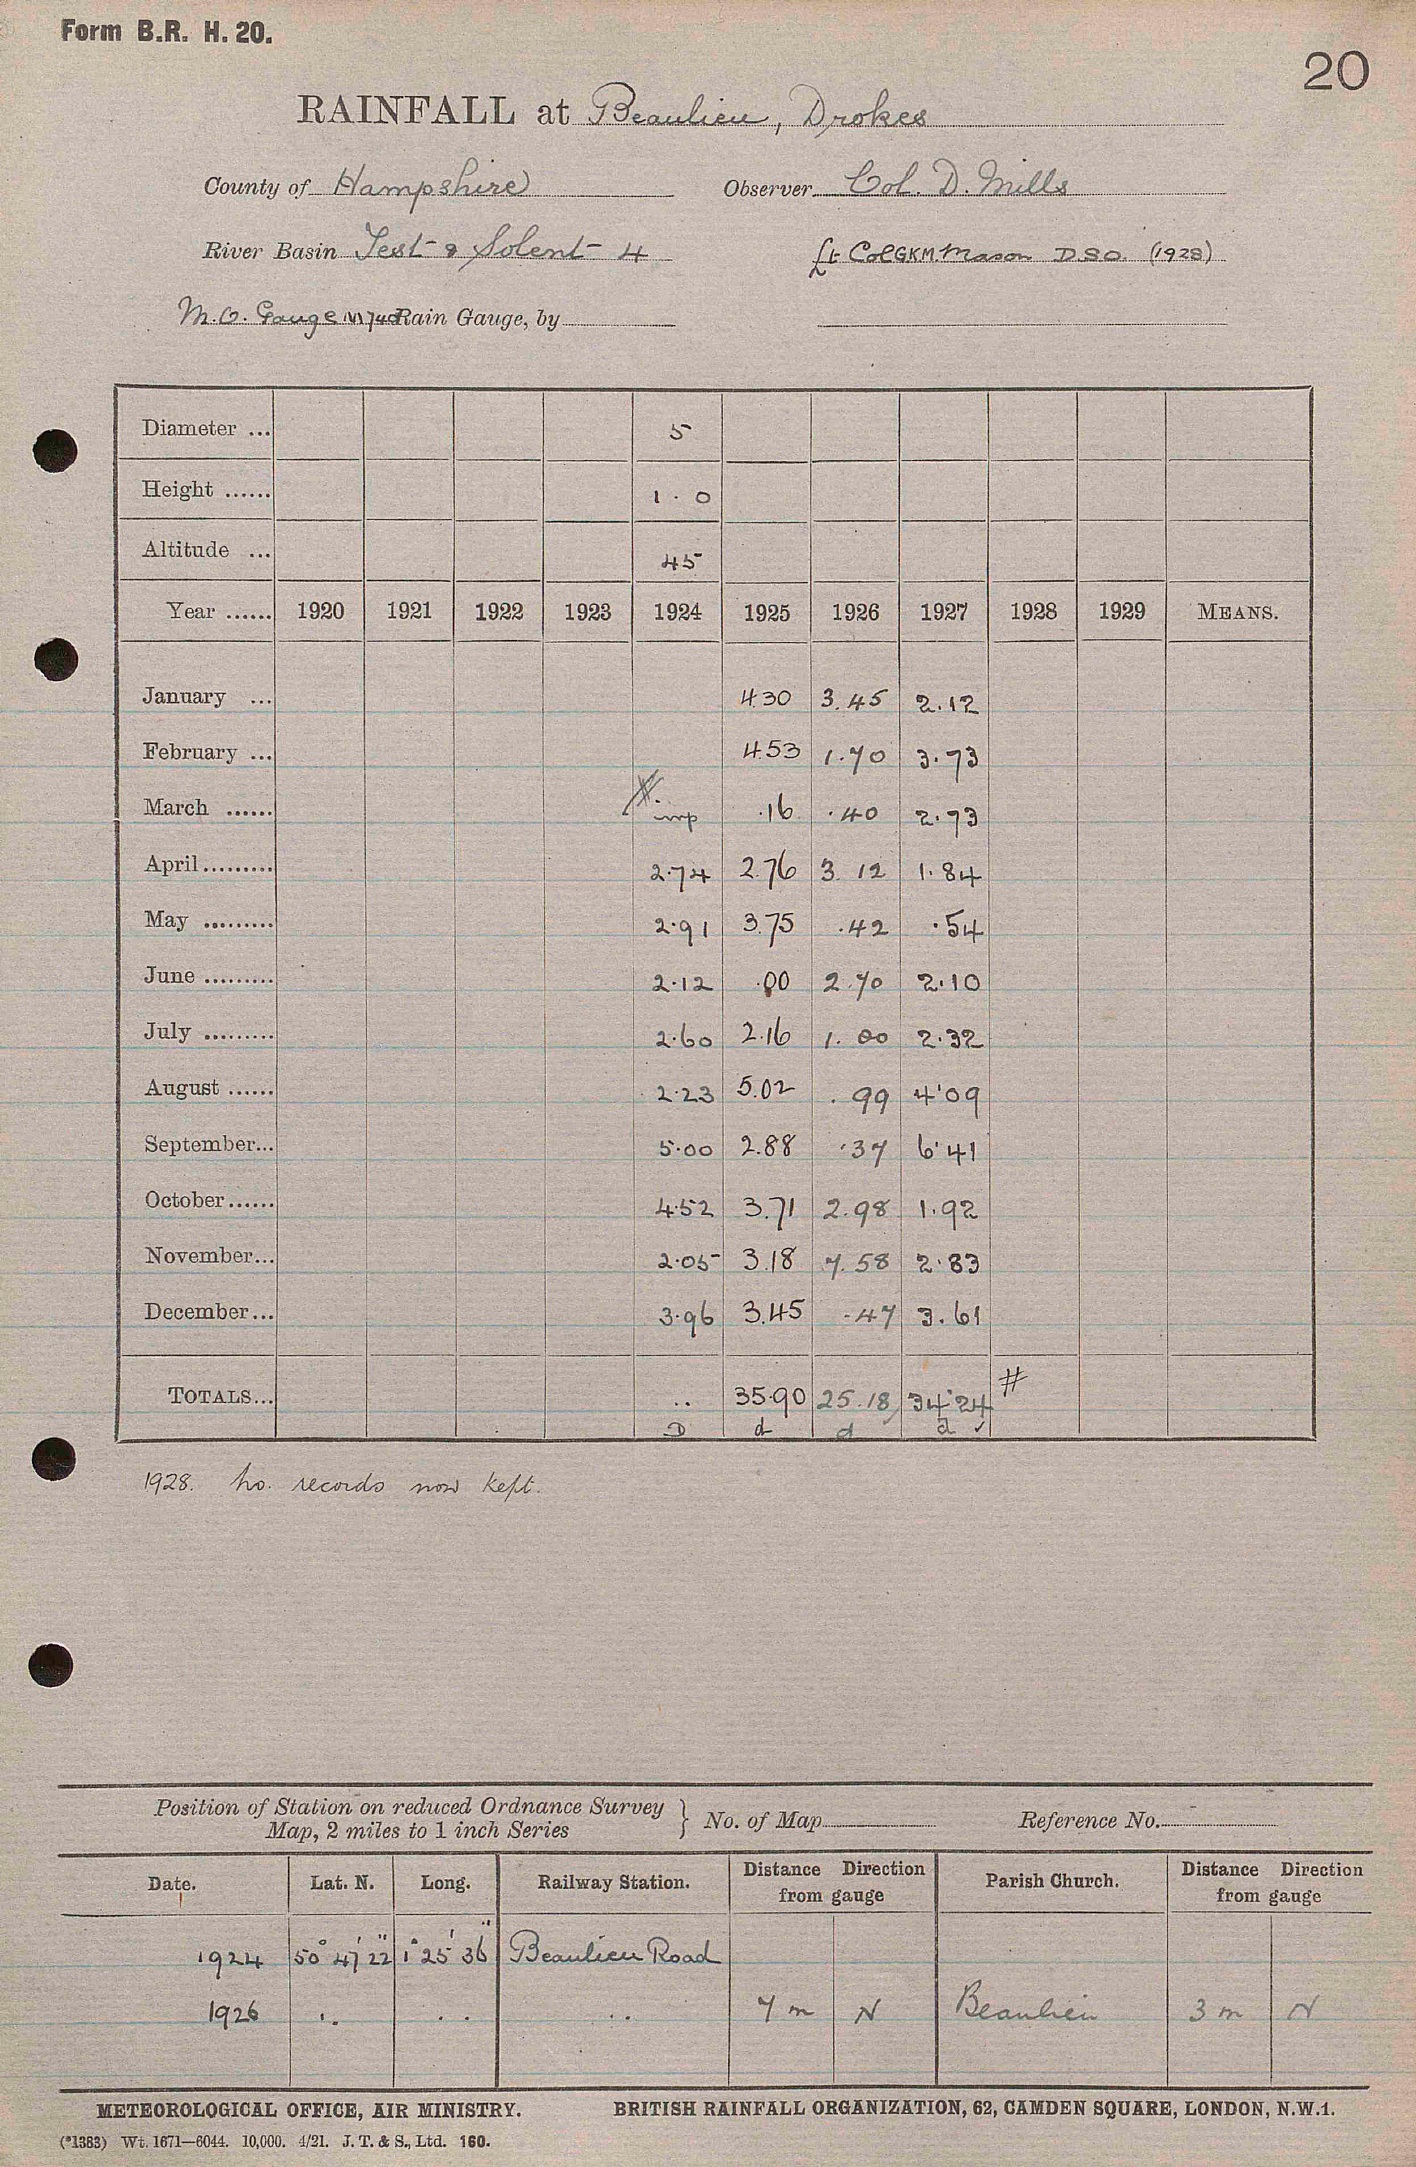 Form B.R. H. 20.
20
RAINFALL at Beaulieu, Drokes
County of Hampshire Observer Col. D. Mills
River Basin Test & Solent 4 Lt Col GKM Mason DSO. (1928)
M.O. Gauge Rain Gauge, by
Diameter ... 5
Height ...... 1.0
Altitude ... 45
Year ...... 1920 1921 1922 1923 1924 1925 1926 1927 1928 1929 MEANS.
January ... 4.30 3.45 2.12
February ... 4.53 1.70 3.73
March ...... imp .16 .40 2.73
April......... 2.74 2.76 3.12 1.84
May ......... 2.91 3.75 .42 .54
June ......... 2.12 .00 2.70 2.10
July ......... 2.60 2.16 1.00 2.32
August ...... 2.23 5.02 .99 4.09
September... 5.00 2.88 .37 6.41
October...... 4.52 3.71 2.98 1.92
November... 2.05 3.18 7.58 2.83
December... 3.96 3.45 .47 3.61
TOTALS... .. 35.90 25.18 34.24 #
D d d d ✓
1928. No. records now kept.
Position of Station on reduced Ordnance Survey
Map, 2 miles to 1 inch Series } No. of Map Reference No.
Date. Lat. N. Long. Railway Station. Distance Direction from gauge Parish Church. Distance Direction from gauge
1924 50° 47' 22" 1° 25' 36" Beaulieu Road
1926 .. .. .. 7 m N Beaulieu 3 m N
METEOROLOGICAL OFFICE, AIR MINISTRY. BRITISH RAINFALL ORGANIZATION, 62, CAMDEN SQUARE, LONDON, N.W.1.
(*1383) Wt. 1671—6044. 10,000. 4/21. J. T. & S., Ltd. 160.